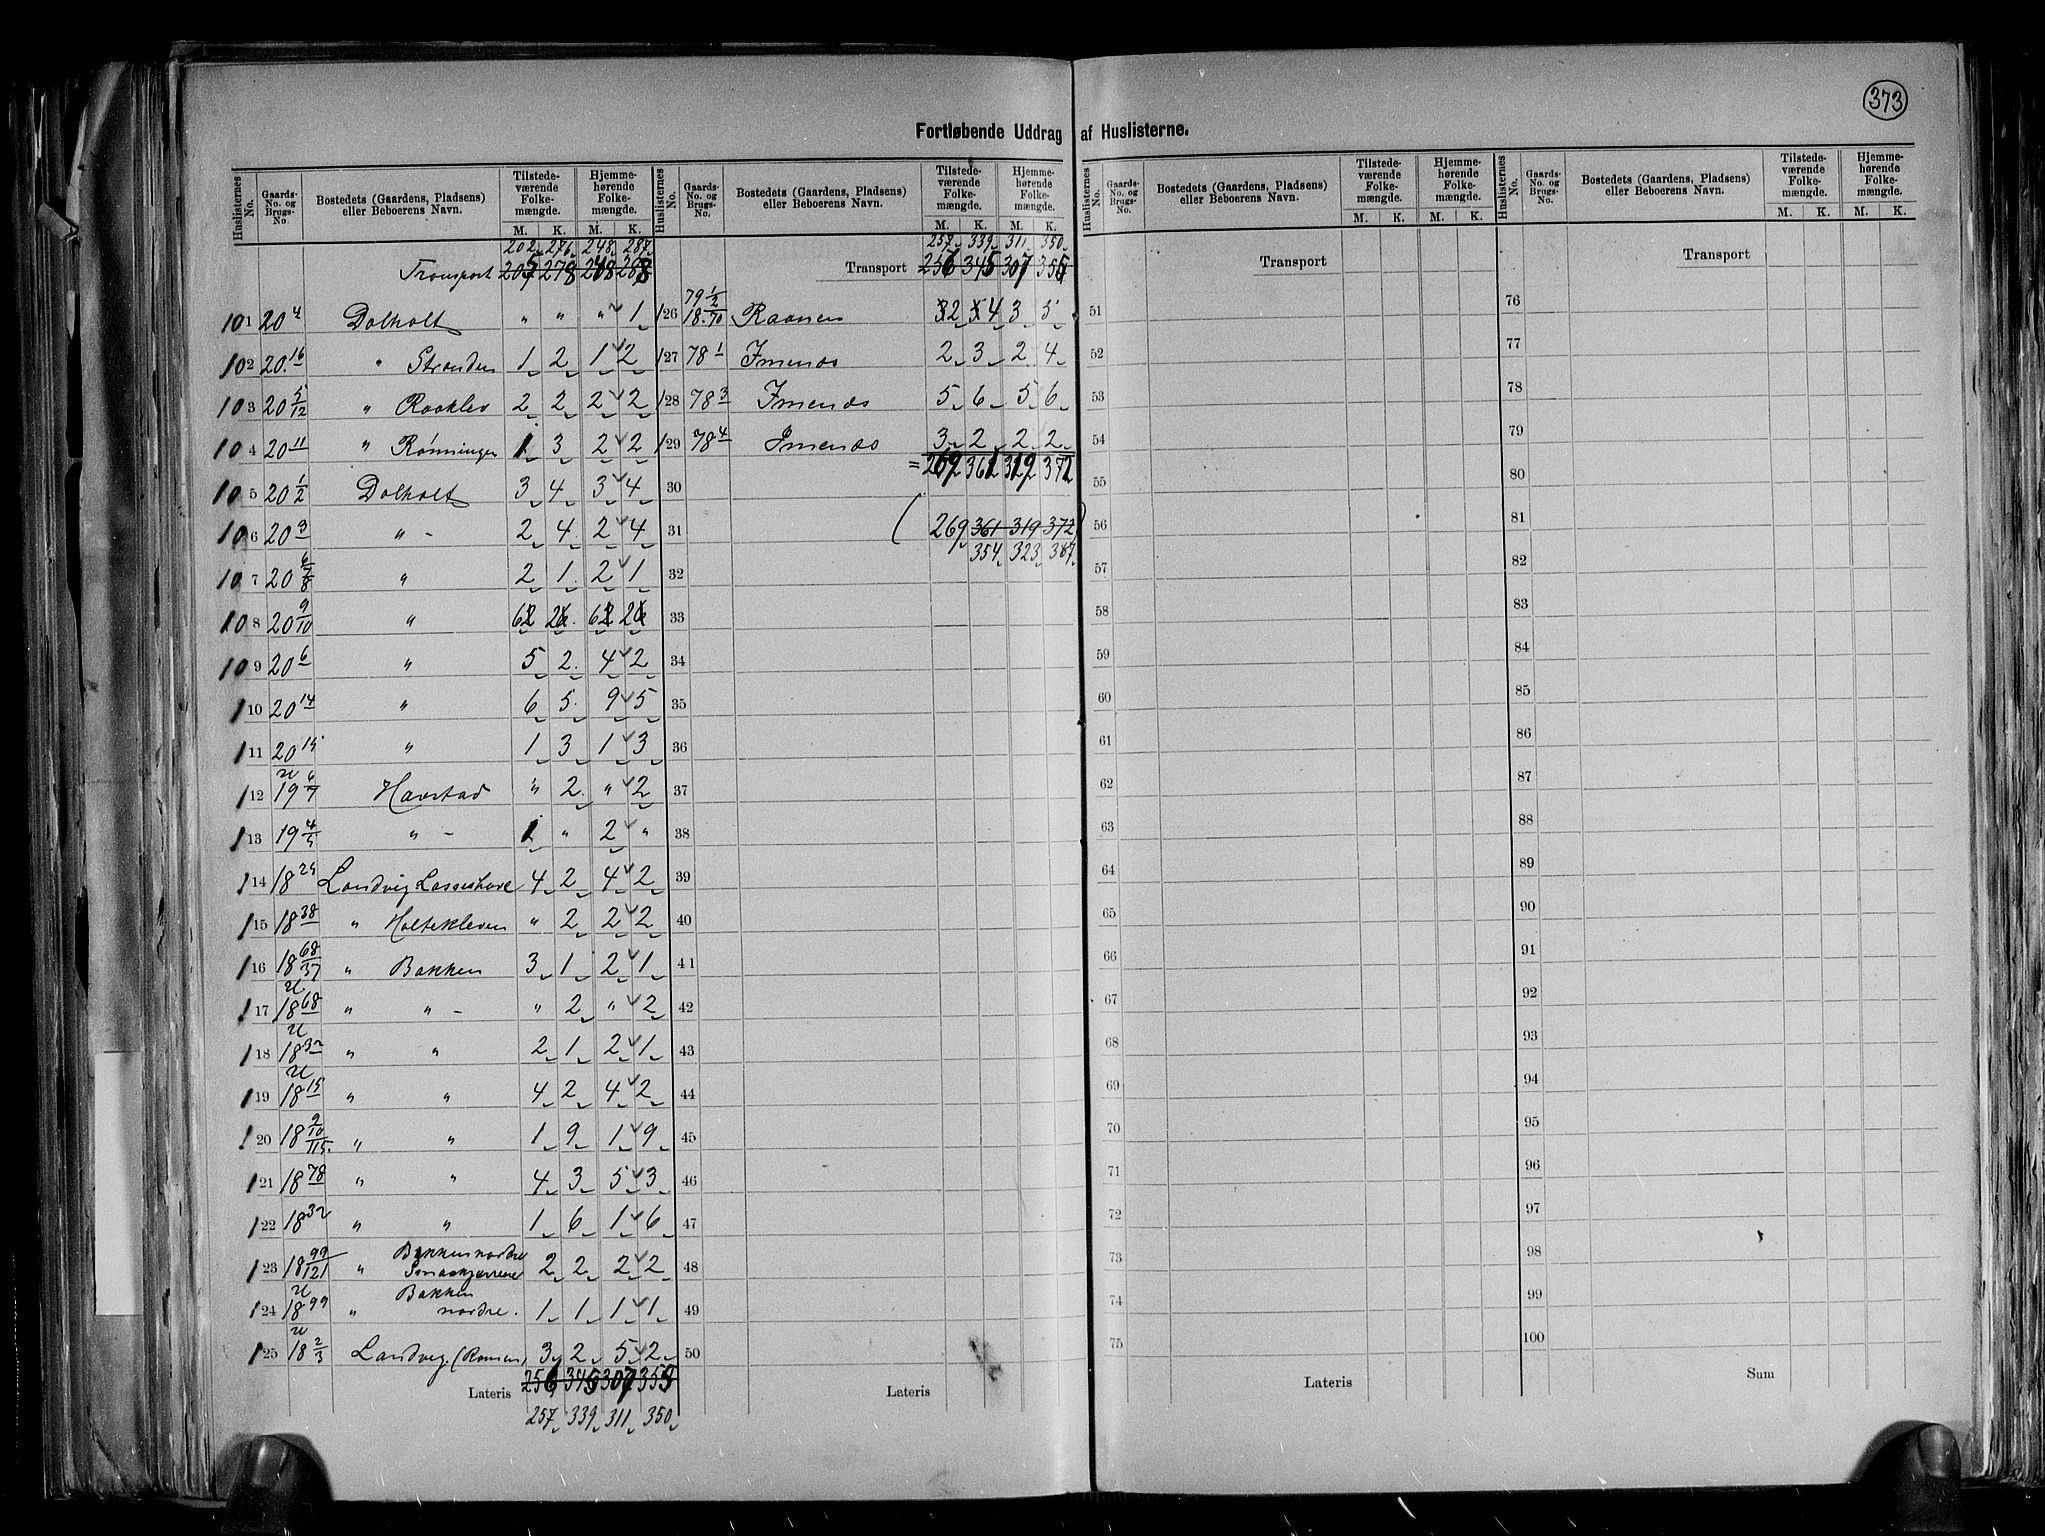 373
Fortløbende Uddrag af Huslisterne.
Huslisternes No. Gaards-No. og Brugs-No. Bostedets (Gaardens, Pladsens) eller Beboerens Navn. Tilstedeværende Folkemængde. M. K. Hjemmehørende Folkemængde. M. K.
202 276 248 287
Transport 205 278 248 288
101 20 4 Dolholt " " " 1
102 20 16 " Stranden 1 2 1 2
103 20 5/12 " Raaklev 2 2 2 2
104 20 11 " Rønningen 1 3 2 2
105 20 1/2 Dolholt 3 4 3 4
106 20 3 " - 2 4 2 4
107 20 6/7/8 " 2 1 2 1
108 20 9/10 "
109 20 6 " 5 2 4 2
110 20 14 " 6 5 9 5
111 20 15 " 1 3 1 3
112 19 6/7 Havstad " 2 " 2
113 19 4/5 " - 1 " 2 "
114 18 25 Landvig Lasseshave 4 2 4 2
115 18 38 " Holtekleven " 2 2 2
116 18 68/37 " Bakken 3 1 2 1
117 18 68 " " - " 2 " 2
118 18 32 " " 2 1 2 1
119 18 15 " " 4 2 4 2
120 18 9/10/115 " " 1 9 1 9
121 18 78 " " 4 3 5 3
122 18 32 " " 1 6 1 6
123 18 99/121 " Bakken nordre Smaakjærrene 2 2 2 2
124 18 99 " Bakken nordre. 1 1 1 1
125 18 2/3 Landvig (Ramen) 3 2 5 2
Lateris 256 345 307 355
257 339 311 350
Huslisternes No. Gaards-No. og Brugs-No. Bostedets (Gaardens, Pladsens) eller Beboerens Navn. Tilstedeværende Folkemængde. M. K. Hjemmehørende Folkemængde. M. K.
257 339 311 350
Transport 256 345 307 355
126 79 1/2 18.70 Raanen 2 4 3 5
127 78 1 Imenæs 2 3 2 4
128 78 3 Imenæs 5 6 5 6
129 78 4 Imenæs 3 2 2 2
= 269 361 319 372
30
31 (269 361 319 372)
354 323 387
32
33
34
35
36
37
38
39
40
41
42
43
44
45
46
47
48
49
50
Lateris
Huslisternes No. Gaards-No. og Brugs-No. Bostedets (Gaardens, Pladsens) eller Beboerens Navn. Tilstedeværende Folkemængde. M. K. Hjemmehørende Folkemængde. M. K.
Transport
51
52
53
54
55
56
57
58
59
60
61
62
63
64
65
66
67
68
69
70
71
72
73
74
75
Lateris
Huslisternes No. Gaards-No. og Brugs-No. Bostedets (Gaardens, Pladsens) eller Beboerens Navn. Tilstedeværende Folkemængde. M. K. Hjemmehørende Folkemængde. M. K.
Transport
76
77
78
79
80
81
82
83
84
85
86
87
88
89
90
91
92
93
94
95
96
97
98
99
100
Sum